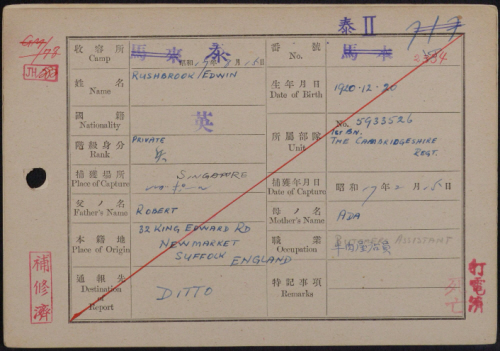 泰 II
GM/78
JH
收容所
Camp
馬來 泰
昭和 17年 9月 15日
番號
No.
馬本
2354
姓名
Name
RUSHBROOK/EDWIN
生年月日
Date of Birth
1920.12.20
國籍
Nationality
英
所屬部隊
Unit
No. 5933526
1st BN.
THE CAMBRIDGESHIRE
REGT.
階級身分
Rank
PRIVATE
捕獲場所
Place of Capture
SINGAPORE
捕獲年月日
Date of Capture
昭和 17年 2月 15日
父ノ名
Father's Name
ROBERT
母ノ名
Mother's Name
ADA
本籍地
Place of Origin
32 KING EDWARD RD
NEWMARKET
SUFFOLK ENGLAND
職業
Occupation
ASSISTANT
通報先
Destination of
Report
DITTO
特記事項
Remarks
補修濟
打電済